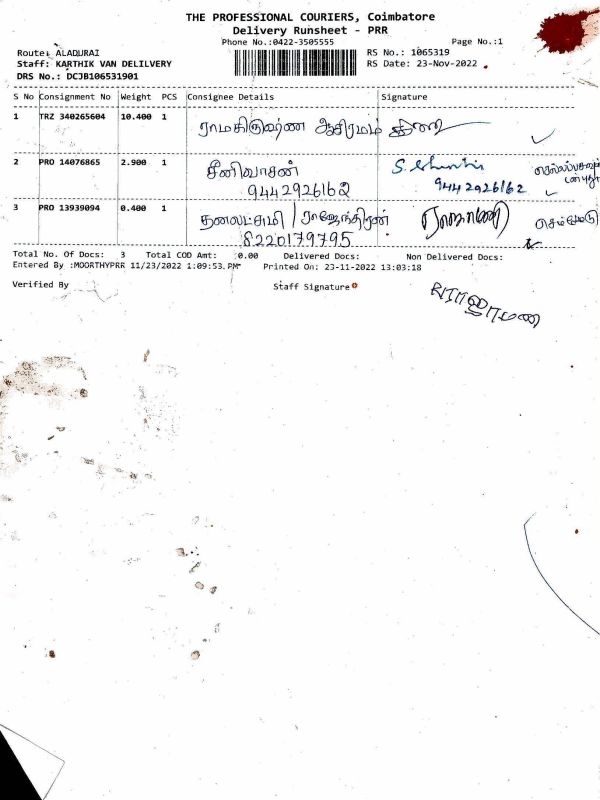 THE PROFESSIONAL COURIERS, Coimbatore
Delivery Runsheet - PRR
Phone No.:0422-3505555 Page No.:1
Route: ALADURAI RS No.: 1065319
Staff: KARTHIK VAN DELILVERY RS Date: 23-Nov-2022
DRS No.: DCJB106531901
S No Consignment No Weight PCS Consignee Details Signature
1 TRZ 340265604 10.400 1 ராமகிருஷ்ண ஆசிரமம்
2 PRO 14076865 2.900 1 சீனிவாசன்
9442926162 9442926162
3 PRO 13939094 0.400 1 தனலட்சுமி / ராஜேந்திரன்
8220179795
Total No. Of Docs: 3 Total COD Amt: 0.00 Delivered Docs: Non Delivered Docs:
Entered By :MOORTHYPRR 11/23/2022 1:09:53 PM Printed On: 23-11-2022 13:03:18
Verified By Staff Signature